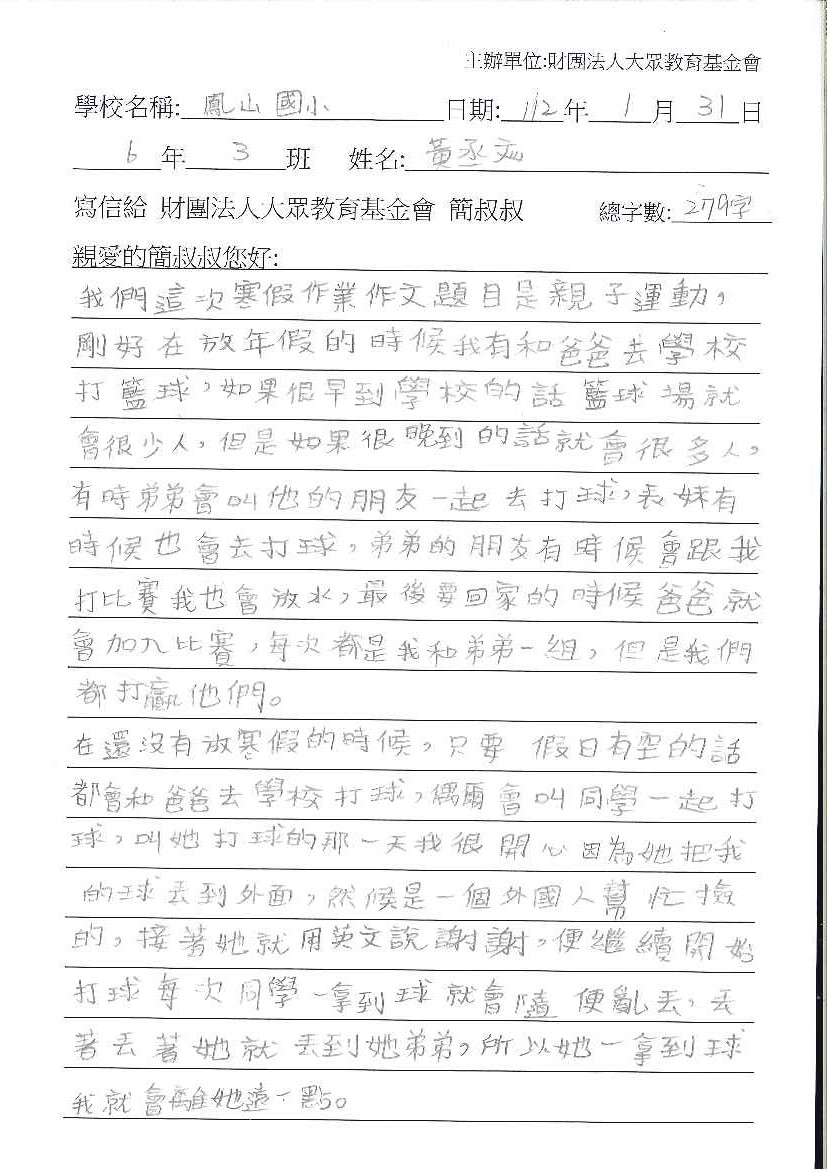 主辦單位:財團法人大眾教育基金會
學校名稱: 鳳山國小 日期: 112 年 1 月 31 日
6 年 3 班 姓名: 黃丞
寫信給 財團法人大眾教育基金會 簡叔叔 總字數: 279字
親愛的簡叔叔您好:
我們這次寒假作業作文題目是親子運動，
剛好在放年假的時候我有和爸爸去學校
打籃球，如果很早到學校的話籃球場就
會很少人，但是如果很晚到的話就會很多人，
有時弟弟會叫他的朋友一起去打球，表妹有
時候也會去打球，弟弟的朋友有時候會跟我
打比賽我也會放水，最後要回家的時候爸爸就
會加入比賽，每次都是我和弟弟一組，但是我們
都打贏他們。
在還沒有放寒假的時候，只要 假日有空的話
都會和爸爸去學校打球，偶爾會叫同學一起打
球，叫她打球的那一天我很開心因為她把我
的球丟到外面，然候是一個外國人幫忙撿
的，接著她就用英文說謝謝，便繼續開始
打球每次同學一拿到球就會隨便亂丟，丟
著丟著她就丟到她弟弟，所以她一拿到球
我就會離她遠一點。